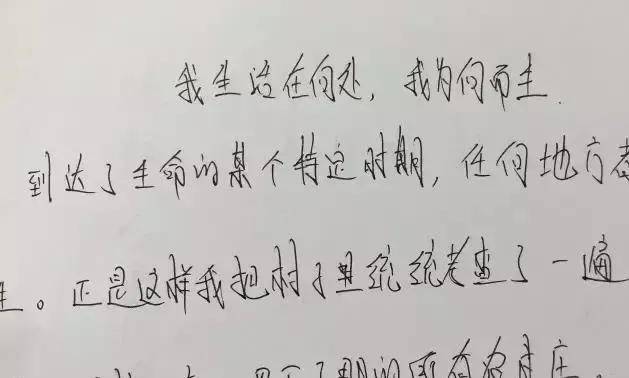 我生活在何处,我为何而生.
到达了生命的某个特定时期,任何地方都
生。正是这样我把村子里统统考查了一遍